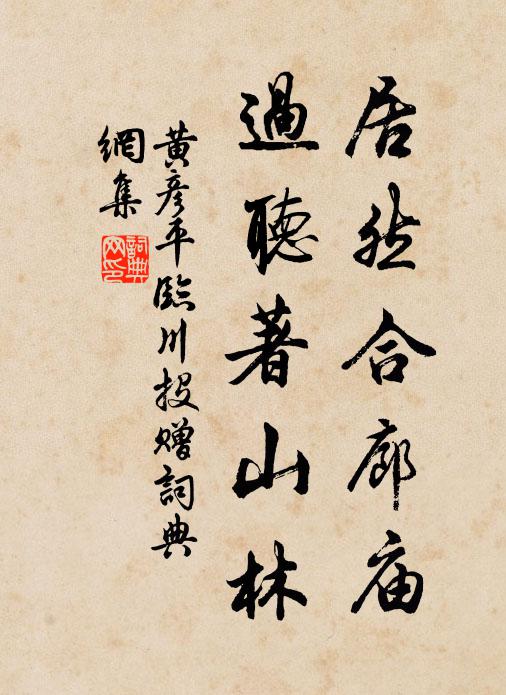 居然合廊庙
過聽著山林
黃彦平臨川投贈詞典
網集
詞典網印